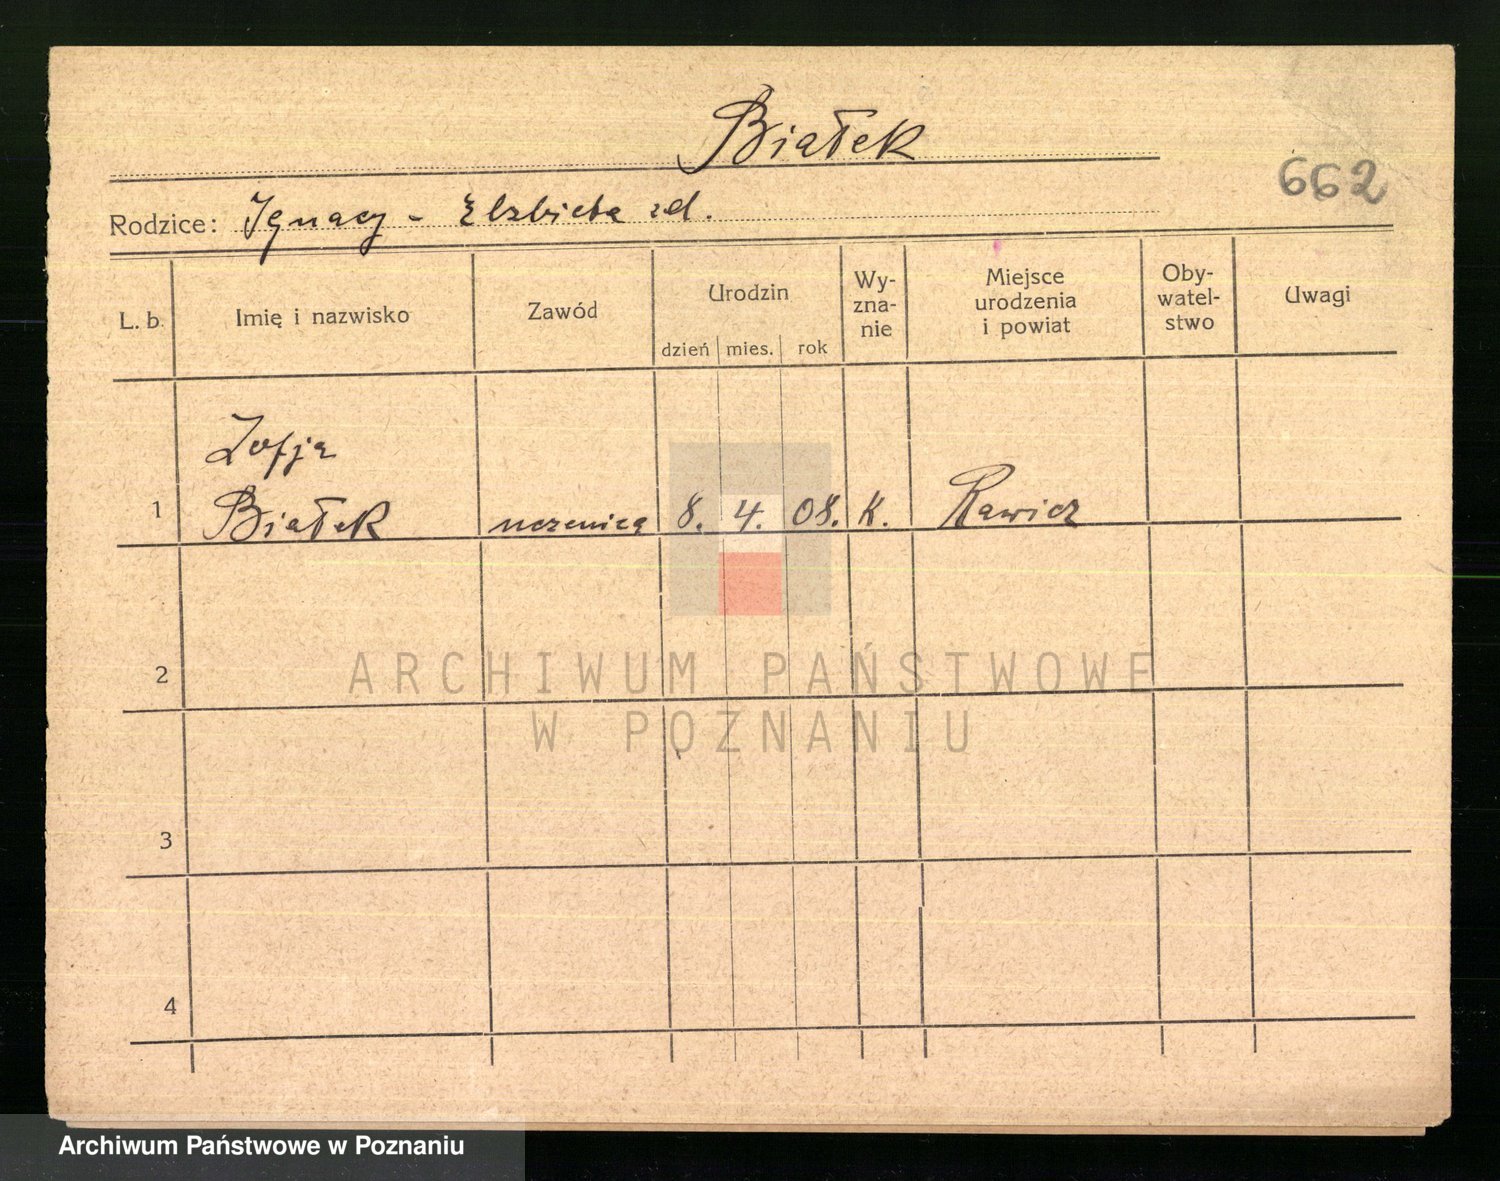 Białek
662
Rodzice: Ignacy - Elżbieta
L. b.
Imię i nazwisko
Zawód
Urodzin
dzień mies. rok
Wy-
zna-
nie
Miejsce
urodzenia
i powiat
Oby-
watel-
stwo
Uwagi
Zofja
1 Białek uczenica 8. 4. 08. K. Rawicz
2
ARCHIWUM PAŃSTWOWE
W POZNANIU
3
4
Archiwum Państwowe w Poznaniu